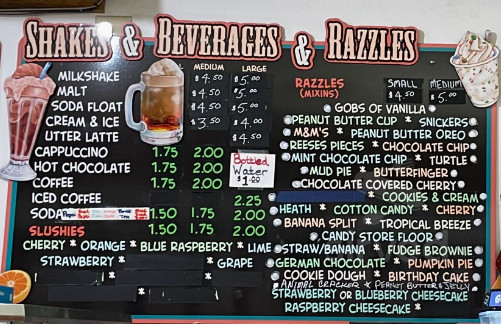 SHAKES & BEVERAGES & RAZZLES
MEDIUM LARGE
MILKSHAKE $4.50 $5.00
MALT $4.50 $5.00
SODA FLOAT $4.50 $5.00
CREAM & ICE $3.50 $4.50
UTTER LATTE $4.50
CAPPUCCINO 1.75 2.00
HOT CHOCOLATE 1.75 2.00
COFFEE 1.75 2.00
Bottled Water $1.00
ICED COFFEE 2.25
SODA 1.50 1.75 2.00
SLUSHIES 1.50 1.75 2.00
CHERRY * ORANGE * BLUE RASPBERRY * LIME
STRAWBERRY * * GRAPE
RAZZLES SMALL MEDIUM
(MIXINS) $4.50 $5.00
GOBS OF VANILLA
PEANUT BUTTER CUP * SNICKERS
M&M'S * PEANUT BUTTER OREO
REESES PIECES * CHOCOLATE CHIP
MINT CHOCOLATE CHIP * TURTLE
MUD PIE * BUTTERFINGER
CHOCOLATE COVERED CHERRY
* COOKIES & CREAM
HEATH * COTTON CANDY * CHERRY
BANANA SPLIT * TROPICAL BREEZE
CANDY STORE FLOOR
STRAW/BANANA * FUDGE BROWNIE
GERMAN CHOCOLATE * PUMPKIN PIE
COOKIE DOUGH * BIRTHDAY CAKE
ANIMAL CRACKER * PEANUT BUTTER & JELLY
STRAWBERRY OR BLUEBERRY CHEESECAKE
RASPBERRY CHEESECAKE *